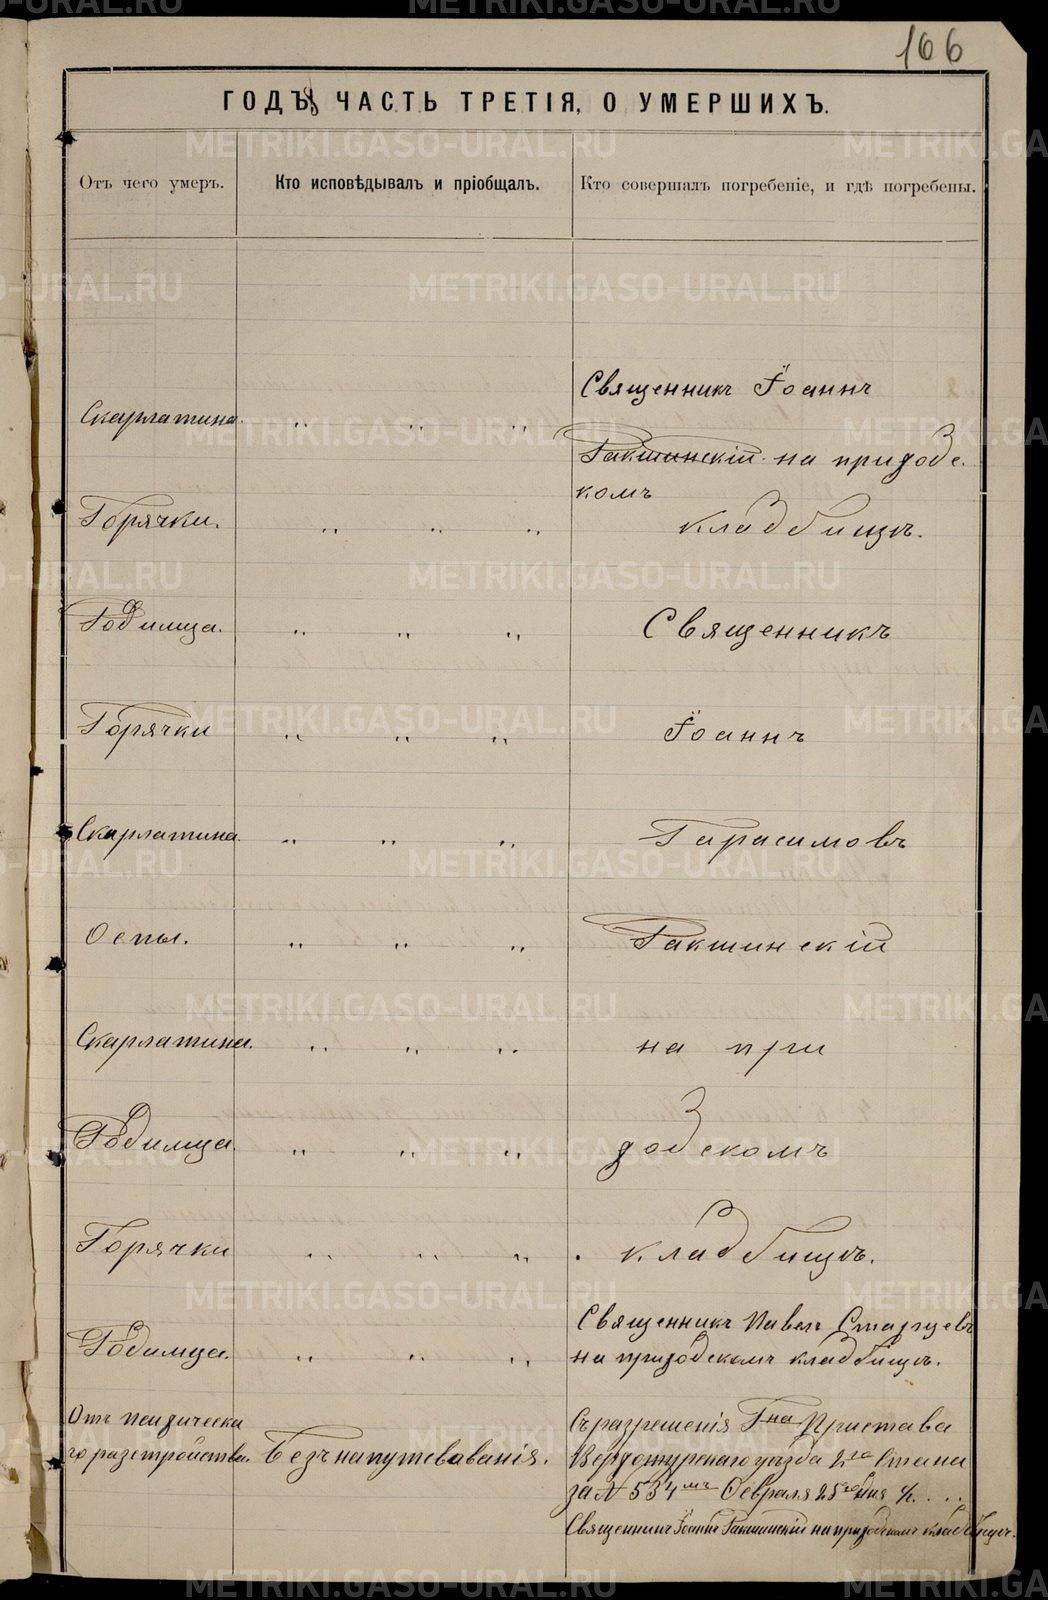 166
ГОДЪ ЧАСТЬ ТРЕТІЯ, О УМЕРШИХЪ.
Отъ чего умеръ. Кто исповѣдывалъ и пріобщалъ. Кто совершалъ погребеніе, и гдѣ погребены.
Священникъ Іоаннъ
Скарлатина. " " "
Ракшинскій на приходс.
комъ
Горячки. " " " кладбищѣ.
Родимца. " " " Священникъ
Горячки " " " Іоаннъ
Скарлатина. " " " Гарасимовъ
Оспы. " " " Ракшинскій
Скарлатина. " " " на при
Родимца. " " " ходскомъ
Горячки " " " кладбищѣ.
Священникъ Павелъ Старцевъ
Родимца. " " " на приходскомъ кладбищѣ.
Отъ психическа
го разстройства. Безъ напутствованія.
Съ разрешенія Гна Пристава
Верхотурскаго уѣзда 2го Стана
за № 534мъ Февраля 25го дня
Священникъ Іоаннъ Ракшинскій на приходскомъ кладбищѣ.
METRIKI.GASO-URAL.RU